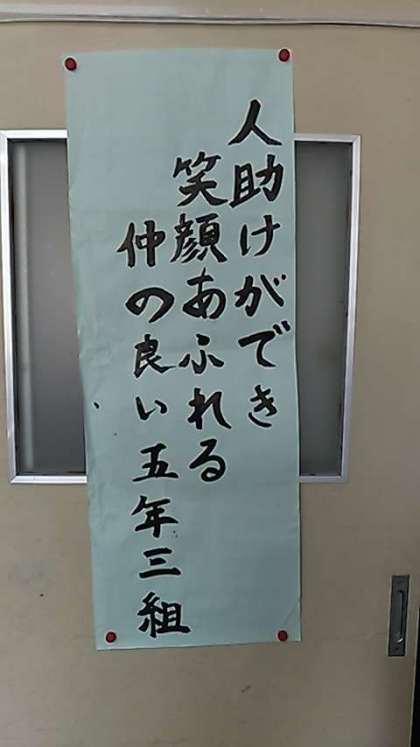 人助けができ
笑顔あふれる
仲の良い五年三組